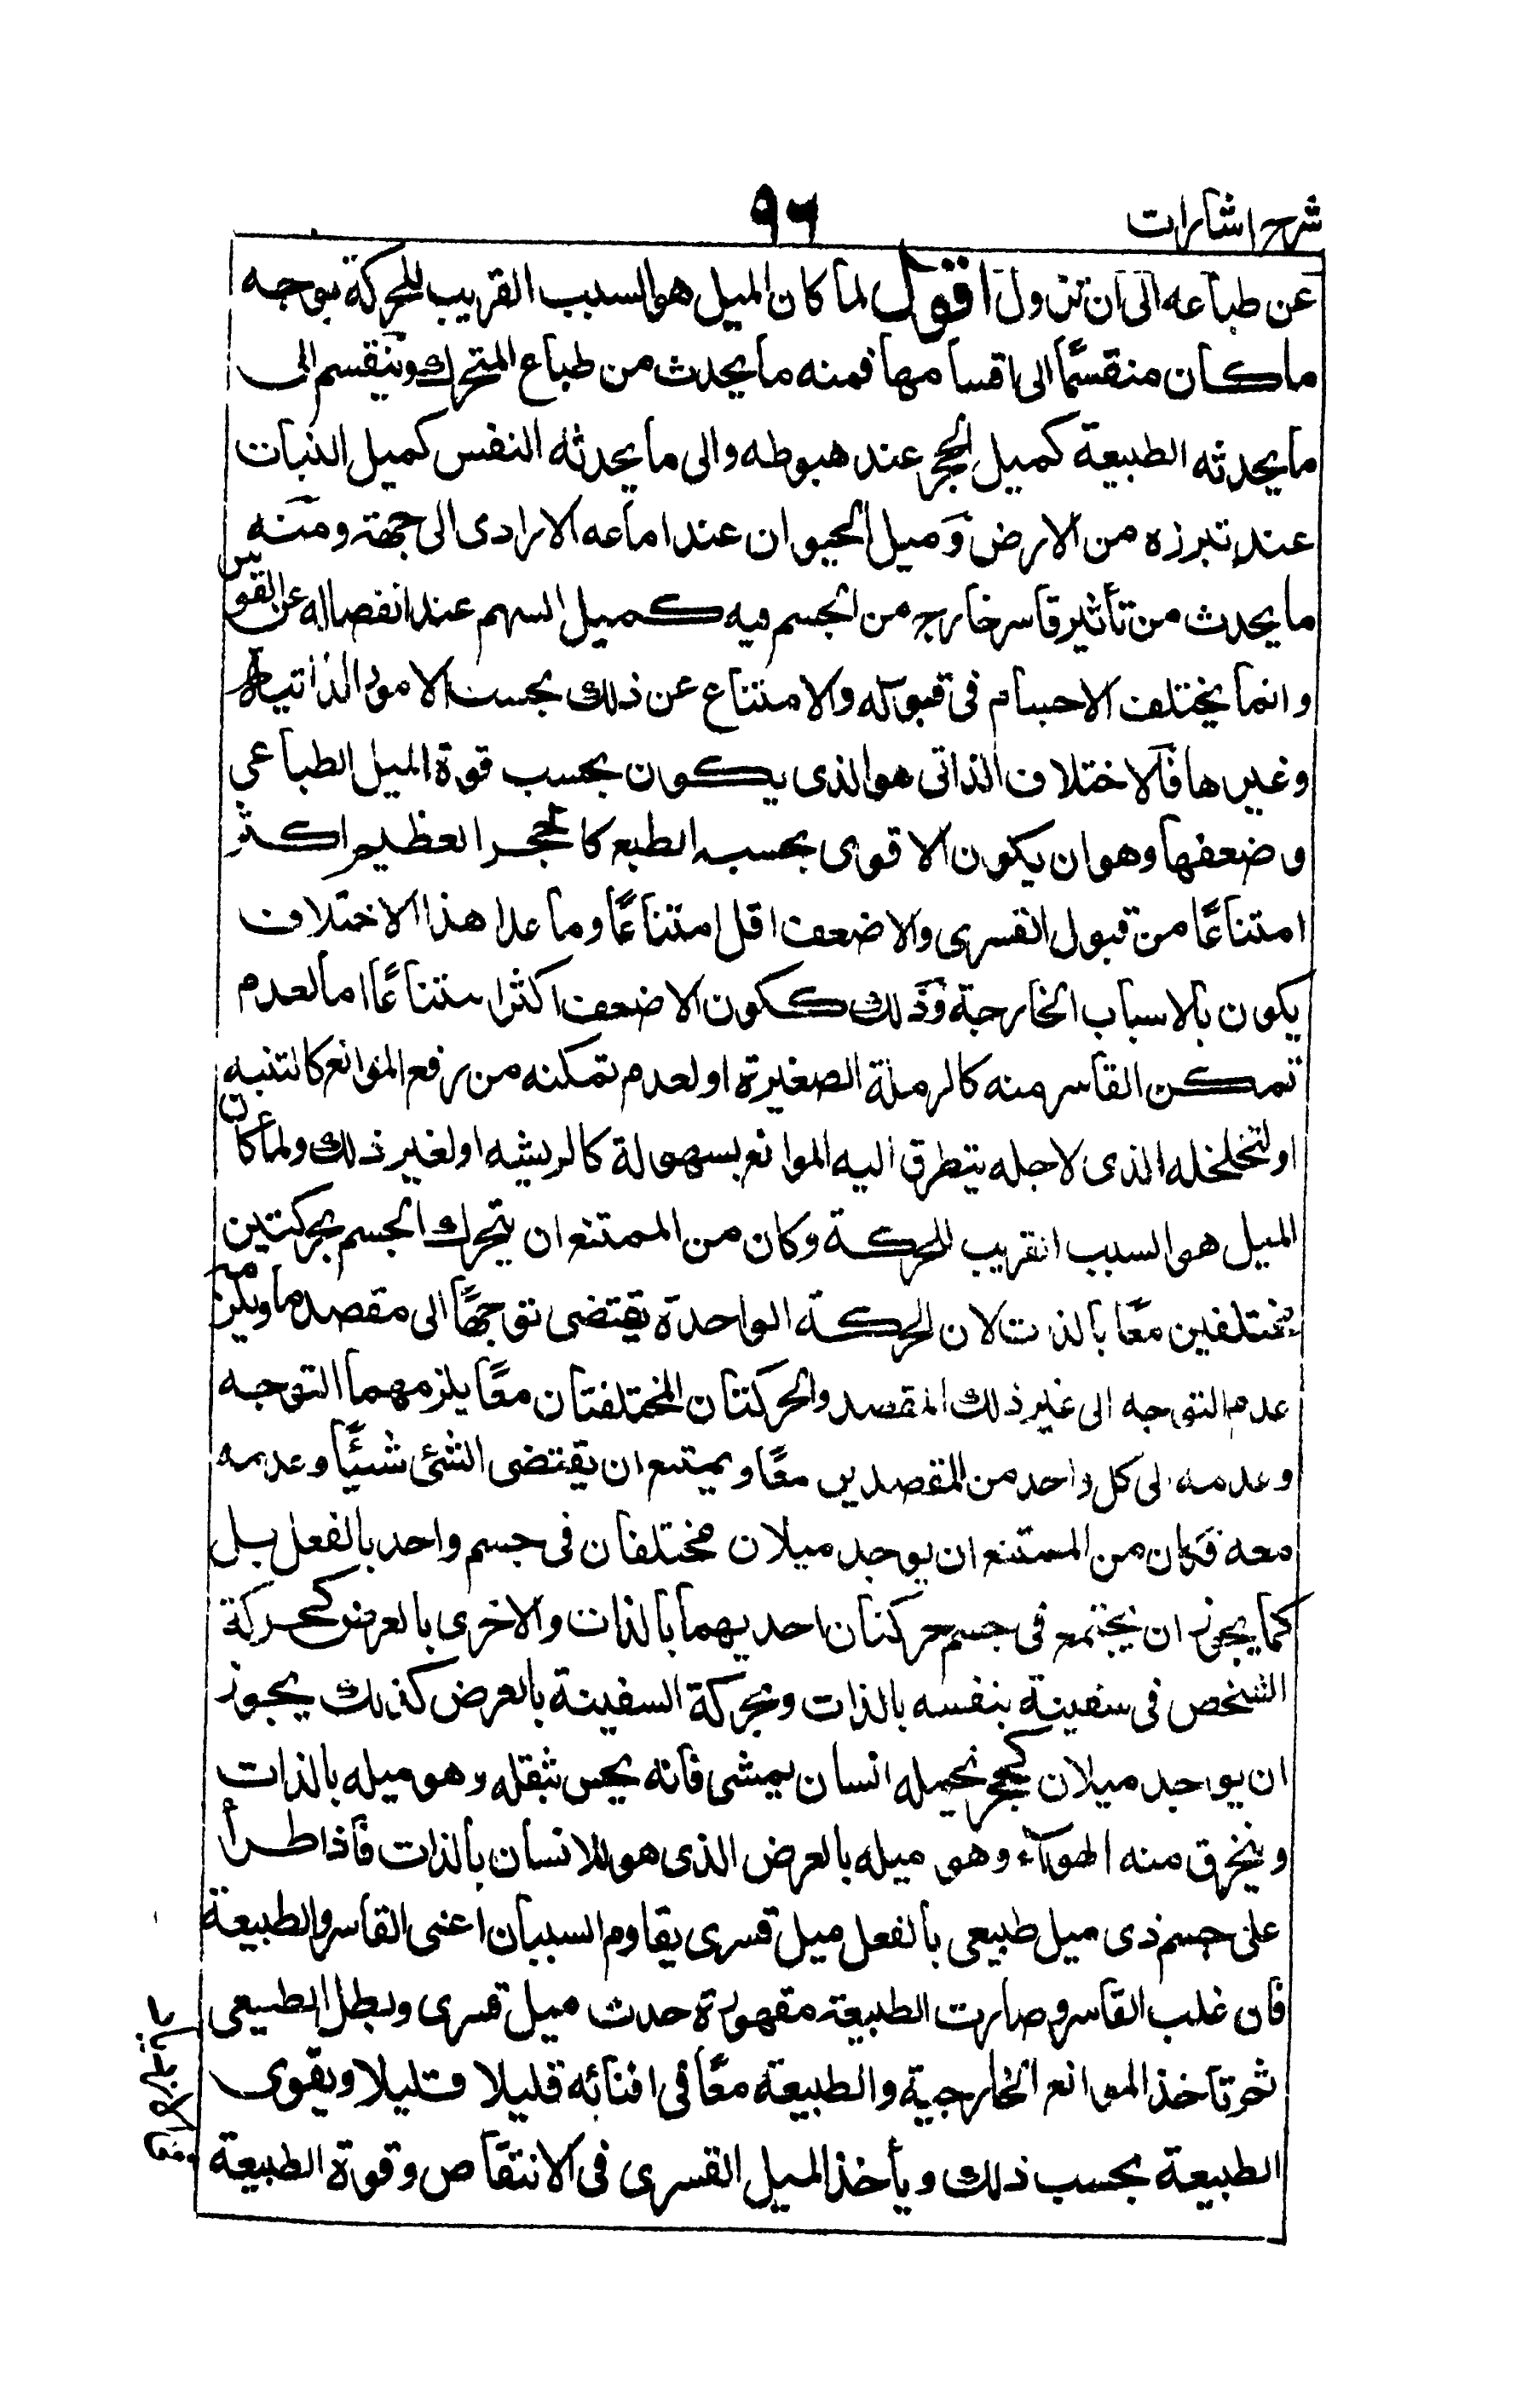 شرح اشارات
٩٦
عن طباعه الى ان تزول اقول لما كان الميل هو السبب القريب للحركة بوجه
ما كان منقسمًا الى اقسامها فمنه ما يحدث من طباع المتحرك وينقسم الى
ما يحدثه الطبيعة كميل الحجر عند هبوطه والى ما يحدثه النفس كميل النبات
عند تبرزه من الارض وميل الحيوان عند اندفاعه الارادى الى جهة ومنه
ما يحدث من تأثير قاسر خارج من الجسم فيه كميل السهم عند انفصاله عن القوس
وانما يختلف الاجسام فى قبوله والامتناع عن ذلك بحسب الامور الذاتية
وغيرها فالاختلاف الذاتى هو الذى يكون بحسب قوة الميل الطباعى
وضعفها وهو ان يكون الاقوى بحسب الطبع كالحجر العظيم اكثر
امتناعًا من قبول القسرى والاضعف اقل امتناعًا وما عدا هذا الاختلاف
يكون بالاسباب الخارجية وذلك ككون الاضعف اكثر امتناعًا اما لعدم
تمكن القاسر منه كالرملة الصغيرة او لعدم تمكنه من رفع الموانع كالتنبه
او لتخلخله الذى لاجله يتطرق اليه الموانع بسهولة كالريشه او لغير ذلك ولما كان
الميل هو السبب القريب للحركة وكان من الممتنع ان يتحرك الجسم بحركتين
مختلفين معًا بالذات لان الحركة الواحدة يقتضى توجهًا الى مقصد ما ويلزمه
عدم التوجه الى غير ذلك المقصد والحركتان المختلفتان معًا يلزمهما التوجه
وعدمه الى كل واحد من المقصدين معًا ويمتنع ان يقتضى الشئ شيئًا وعدمه
معه فكان من الممتنع ان يوجد ميلان مختلفان فى جسم واحد بالفعل بل
كما يجوز ان يجتمع فى جسم حركتان احديهما بالذات والاخرى بالعرض كحركة
الشخص فى سفينة بنفسه بالذات وبحركة السفينة بالعرض كذلك يجوز
ان يوجد ميلان كحجر يحمله انسان يمشى فانه يحس بثقله وهو ميله بالذات
وينخرق منه الهواء وهو ميله بالعرض الذى هو للانسان بالذات فاذا طرأ
على جسم ذى ميل طبيعى بالفعل ميل قسرى يقاوم السببان اعنى القاسر والطبيعة
فان غلب القاسر وصارت الطبيعة مقهورة حدث ميل قسرى وبطل الطبيعى
ثم تاخذ الموانع الخارجية والطبيعة معًا فى افنائه قليلا قليلا ويقوى
الطبيعة بحسب ذلك ويأخذ الميل القسرى فى الانتقاص وقوة الطبيعة